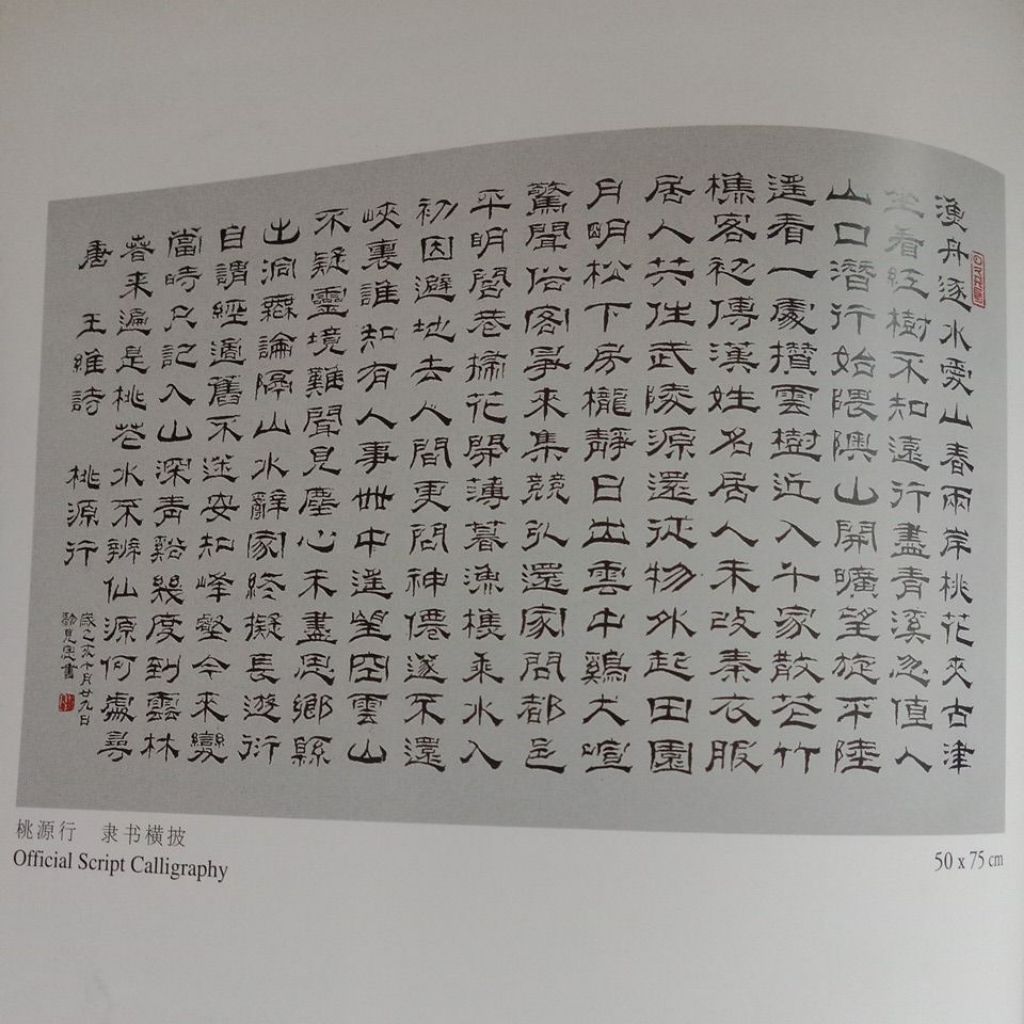 漁舟逐水愛山春兩岸桃花夾古津
坐看紅樹不知遠行盡青溪忽值人
山口潛行始隈隩山開曠望旋平陸
遥看一處攢雲樹近入千家散花竹
樵客初傳漢姓名居人未改秦衣服
居人共住武陵源還從物外起田園
月明松下房櫳靜日出雲中鷄犬喧
驚聞俗客爭來集競引還家問都邑
平明閭巷掃花開薄暮漁樵乘水入
初因避地去人間更問神僊遂不還
峽裏誰知有人事世中遥望空雲山
不疑靈境難聞見塵心未盡思鄉縣
出洞無論隔山水辭家終擬長遊衍
自謂經過舊不迷安知峰壑今來變
當時只記入山深青谿幾度到雲林
春来遍是桃花水不辨仙源何處尋
唐 王維詩 桃源行
歲乙亥十月廿九日
見思書
桃源行 隶书横披
Official Script Calligraphy
50 x 75 cm